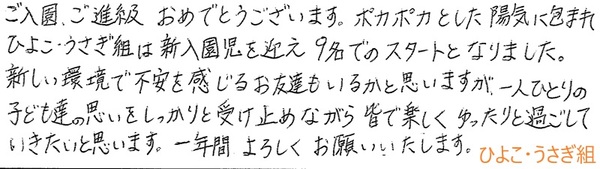 ご入園、ご進級 おめでとうございます。ポカポカとした陽気に包まれ
ひよこ・うさぎ組は新入園児を迎え9名でのスタートとなりました。
新しい環境で不安を感じるお友達もいるかと思いますが、一人ひとりの
子ども達の思いをしっかりと受け止めながら皆で楽しくゆったりと過ごして
いきたいと思います。一年間よろしくお願いいたします。ひよこ・うさぎ組